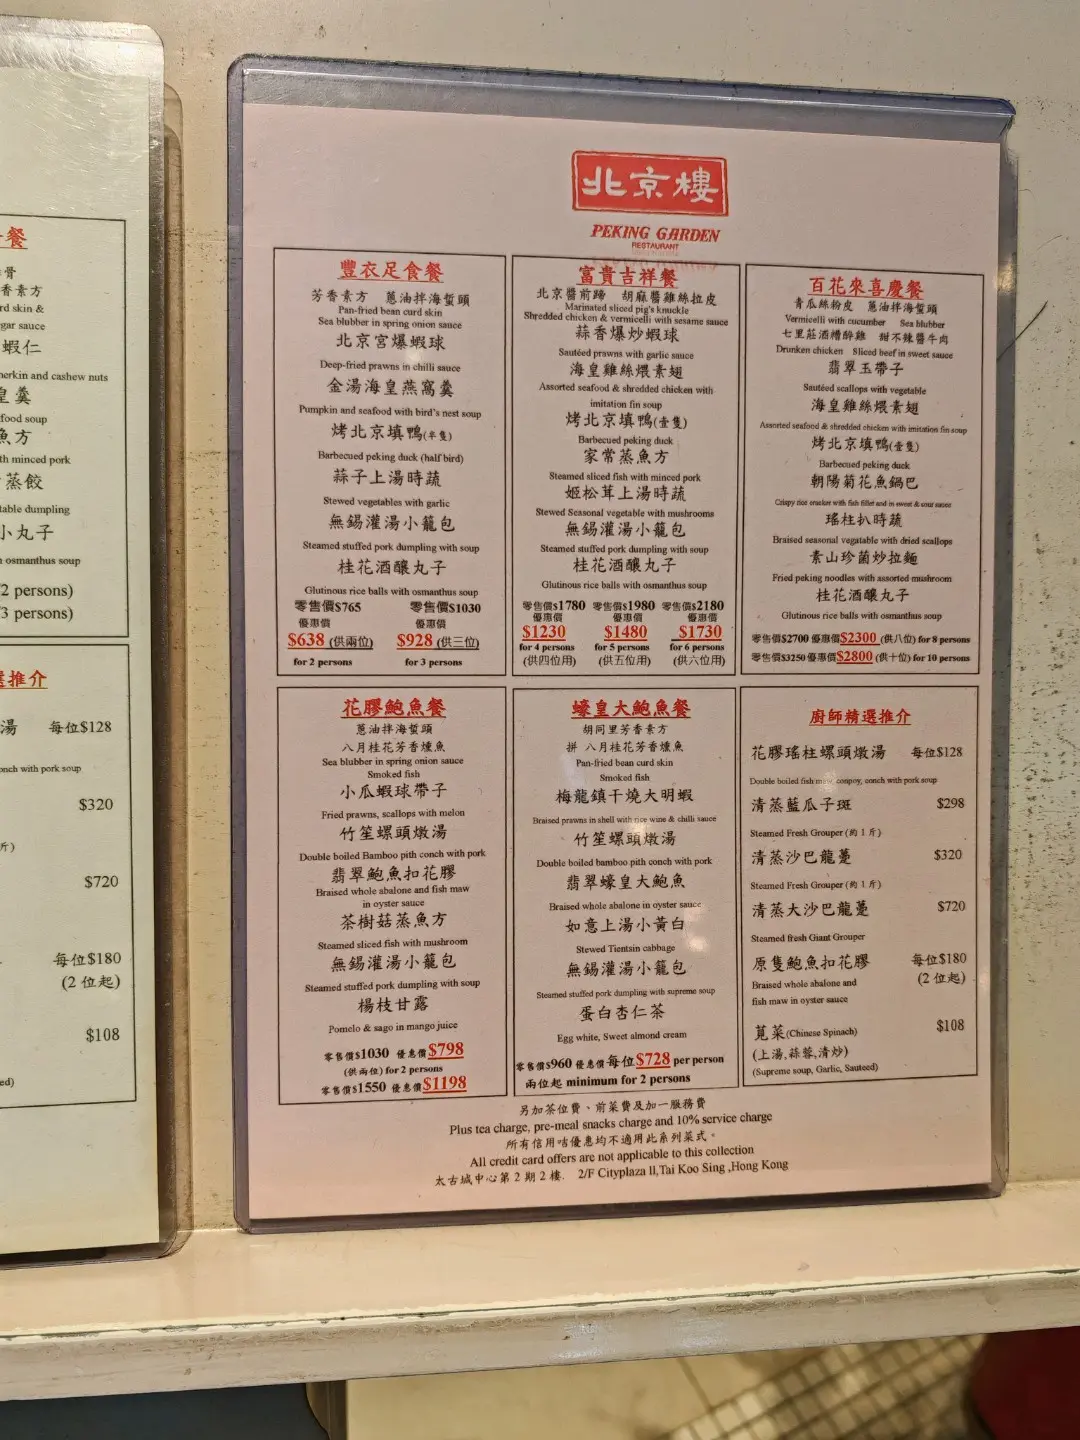 餐
骨
香素方
rd skin &
gar sauce
蝦仁
herkin and cashew nuts
皇羹
food soup
魚方
th minced pork
蒸餃
table dumpling
小丸子
osmanthus soup
2 persons)
3 persons)
推介
湯 每位$128
onch with pork soup
$320
斤)
$720
每位$180
(2 位起)
$108
ed)
北京樓
PEKING GARDEN
RESTAURANT
豐衣足食餐
芳香素方 蔥油拌海蜇頭
Pan-fried bean curd skin
Sea blubber in spring onion sauce
北京宮爆蝦球
Deep-fried prawns in chilli sauce
金湯海皇燕窩羹
Pumpkin and seafood with bird's nest soup
烤北京填鴨(半隻)
Barbecued peking duck (half bird)
蒜子上湯時蔬
Stewed vegetables with garlic
無錫灌湯小籠包
Steamed stuffed pork dumpling with soup
桂花酒釀丸子
Glutinous rice balls with osmanthus soup
零售價$765 零售價$1030
優惠價 優惠價
$638 (供兩位) $928 (供三位)
for 2 persons for 3 persons
富貴吉祥餐
北京醬前蹄 胡麻醬雞絲拉皮
Marinated sliced pig's knuckle
Shredded chicken & vermicelli with sesame sauce
蒜香爆炒蝦球
Sautéed prawns with garlic sauce
海皇雞絲煨素翅
Assorted seafood & shredded chicken with
imitation fin soup
烤北京填鴨(壹隻)
Barbecued peking duck
家常蒸魚方
Steamed sliced fish with minced pork
姬松茸上湯時蔬
Stewed Seasonal vegetable with mushrooms
無錫灌湯小籠包
Steamed stuffed pork dumpling with soup
桂花酒釀丸子
Glutinous rice balls with osmanthus soup
零售價$1780 零售價$1980 零售價$2180
優惠價 優惠價 優惠價
$1230 $1480 $1730
for 4 persons for 5 persons for 6 persons
(供四位用) (供五位用) (供六位用)
百花來喜慶餐
青瓜絲粉皮 蔥油拌海蜇頭
Vermicelli with cucumber Sea blubber
七里莊酒糟醉雞 甜不辣醬牛肉
Drunken chicken Sliced beef in sweet sauce
翡翠玉帶子
Sautéed scallops with vegetable
海皇雞絲煨素翅
Assorted seafood & shredded chicken with imitation fin soup
烤北京填鴨(壹隻)
Barbecued peking duck
朝陽菊花魚鍋巴
Crispy rice cracker with fish fillet and in sweet & sour sauce
瑤柱扒時蔬
Braised seasonal vegatable with dried scallops
素山珍菌炒拉麵
Fried peking noodles with assorted mushroom
桂花酒釀丸子
Glutinous rice balls with osmanthus soup
零售價$2700 優惠價$2300 (供八位) for 8 persons
零售價$3250 優惠價$2800 (供十位) for 10 persons
花膠鮑魚餐
蔥油拌海蜇頭
八月桂花芳香燻魚
Sea blubber in spring onion sauce
Smoked fish
小瓜蝦球帶子
Fried prawns, scallops with melon
竹笙螺頭燉湯
Double boiled Bamboo pith conch with pork
翡翠鮑魚扣花膠
Braised whole abalone and fish maw
in oyster sauce
茶樹菇蒸魚方
Steamed sliced fish with mushroom
無錫灌湯小籠包
Steamed stuffed pork dumpling with soup
楊枝甘露
Pomelo & sago in mango juice
零售價$1030 優惠價$798
(供兩位) for 2 persons
零售價$1550 優惠價$1198
蠔皇大鮑魚餐
胡同里芳香素方
拼 八月桂花芳香燻魚
Pan-fried bean curd skin
Smoked fish
梅龍鎮干燒大明蝦
Braised prawns in shell with rice wine & chilli sauce
竹笙螺頭燉湯
Double boiled bamboo pith conch with pork
翡翠蠔皇大鮑魚
Braised whole abalone in oyster sauce
如意上湯小黃白
Stewed Tientsin cabbage
無錫灌湯小籠包
Steamed stuffed pork dumpling with supreme soup
蛋白杏仁茶
Egg white, Sweet almond cream
零售價$960 優惠價每位$728 per person
兩位起 minimum for 2 persons
廚師精選推介
花膠瑤柱螺頭燉湯 每位$128
Double boiled fish maw, conpoy, conch with pork soup
清蒸藍瓜子斑 $298
Steamed Fresh Grouper (約 1 斤)
清蒸沙巴龍躉 $320
Steamed Fresh Grouper (約 1 斤)
清蒸大沙巴龍躉 $720
Steamed fresh Giant Grouper
原隻鮑魚扣花膠 每位$180
Braised whole abalone and (2 位起)
fish maw in oyster sauce
莧菜(Chinese Spinach) $108
(上湯,蒜蓉,清炒)
(Supreme soup, Garlic, Sauteed)
另加茶位費、前菜費及加一服務費
Plus tea charge, pre-meal snacks charge and 10% service charge
所有信用咭優惠均不適用此系列菜式。
All credit card offers are not applicable to this collection
太古城中心第 2 期 2 樓. 2/F Cityplaza II,Tai Koo Sing ,Hong Kong